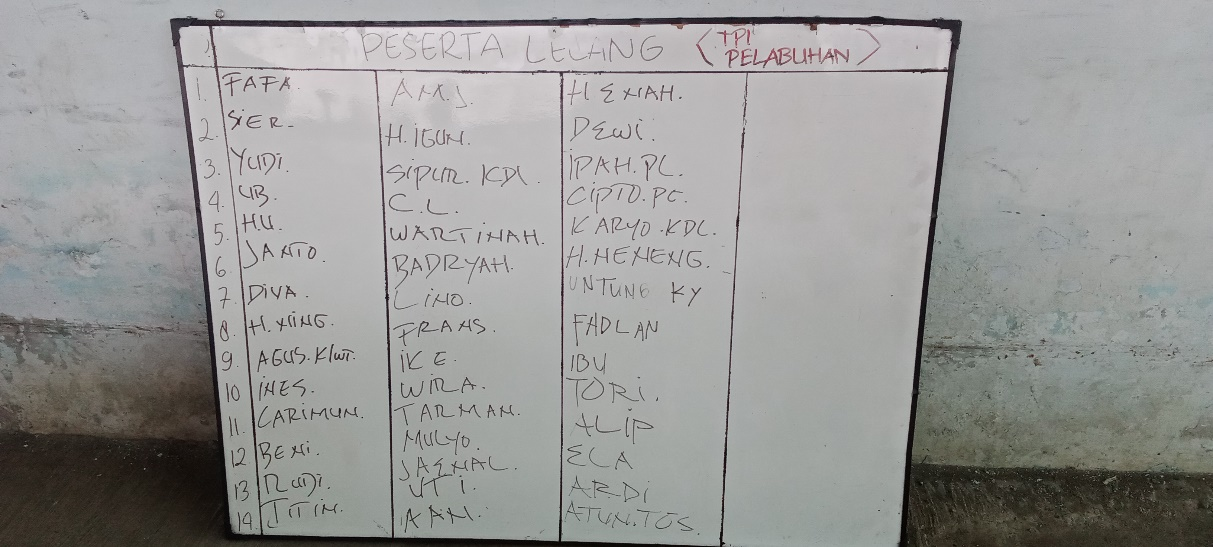 PESERTA LELANG (TPI PELABUHAN)
1. FAFA. AM.J. H ENAH.
2. SIER. H. IGUN. DEWI.
3. YUDI. SIPUR. KDL. IPAH.PC.
4. UB. C.L. CIPTO.PC.
5. H.U. WARTINAH. KARYO.KDL.
6. JANTO. BADRYAH. H.NENENG.
7. DIVA. LINO. UNTUNG KY
8. H. NING. FRANS. FADLAN
9. AGUS.KIWI. IKE. IBU
10 INES. WIRA. TORI.
11. CARIMUN. TARMAN. ALIP
12 BENI. MULYO. ELA
13 RUDI. JAENAL. ARDI
14. TITIN. UTI. ATUN.TOS.
AAN.